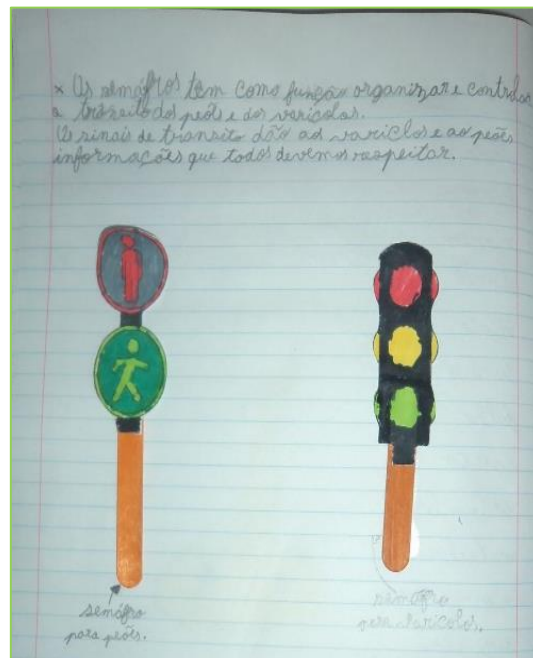 × Os semáfros têm como função organizar e controlar
o trânsito dos peões e dos varicolos.
Os sinais de transito dão aos variclos e ao peões
informações que todos devemos respeitar.
semáfro
para peões.
semáfro
para varicolos.